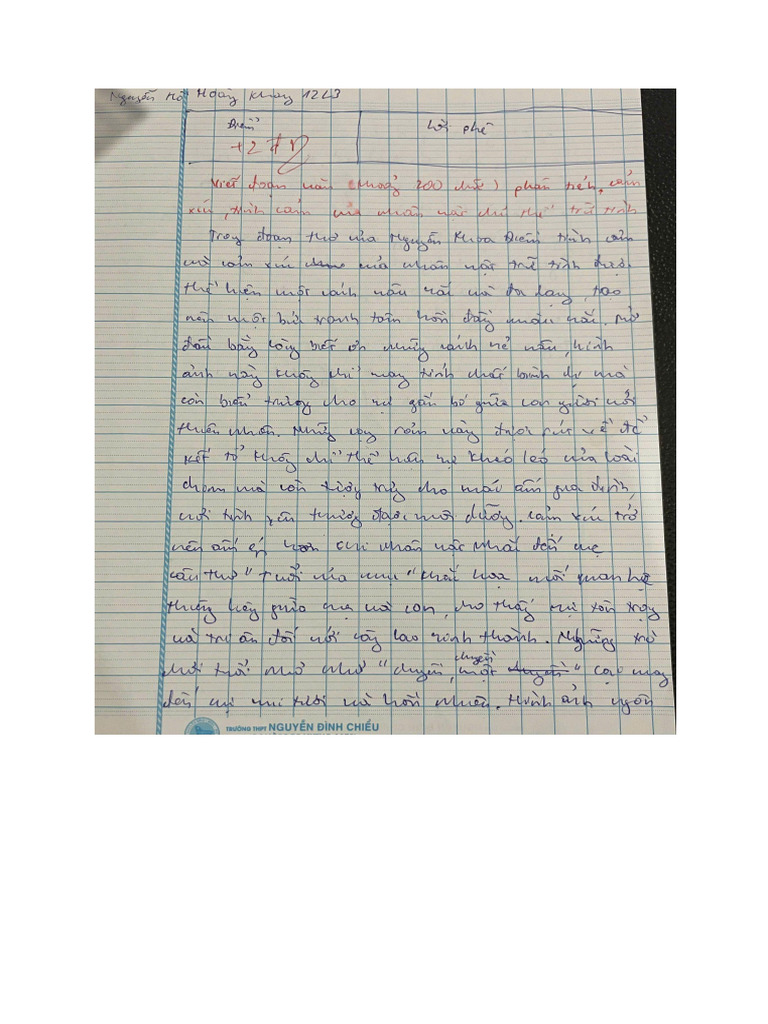 Nguyễn Hồ Hoàng Khang 12L3
Điểm
Lời phê
+2 đ
Viết đoạn văn (khoảng 200 chữ) phân tích cảm
xúc, tình cảm của nhân vật chủ thể trữ tình
Trong đoạn thơ của Nguyễn Khoa Điềm, tình cảm
và cảm xúc của nhân vật trữ tình được
thể hiện một cách sâu sắc và đa dạng, tạo
nên một bức tranh tâm hồn đầy màu sắc. Mở
đầu bằng lòng biết ơn những cánh sẻ nâu, hình
ảnh này không chỉ mang tính chất bình dị mà
còn biểu trưng cho sự gắn bó giữa con người với
thiên nhiên. Những cọng rơm vàng được rút về để
kết tổ không chỉ thể hiện sự khéo léo của loài
chim mà còn tượng trưng cho mái ấm gia đình,
nơi tình yêu thương được nuôi dưỡng. Cảm xúc trở
nên ấm áp hơn khi nhân vật nhắc đến mẹ
"
"
mối quan hệ
thiêng liêng giữa mẹ và con, cho thấy sự tôn trọng
và tri ân đối với công lao sinh thành. Những trò
chơi tuổi nhỏ như "chuyền chuyền một" cũng mang
đến sự vui tươi và hồn nhiên. Hình ảnh ngôn
TRƯỜNG THPT NGUYỄN ĐÌNH CHIỂU